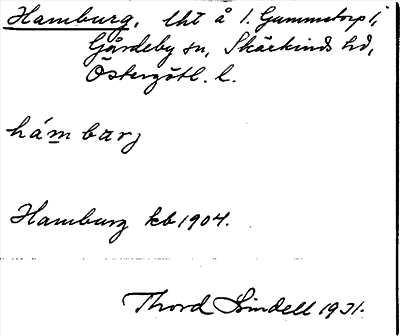 Hamburg, lht å 1. Gummetorp 1,
Gårdeby sn, Skärkinds hd,
Östergötl. l.
hámbarj
Hamburg kb 1904.
Thord Lindell 1931.